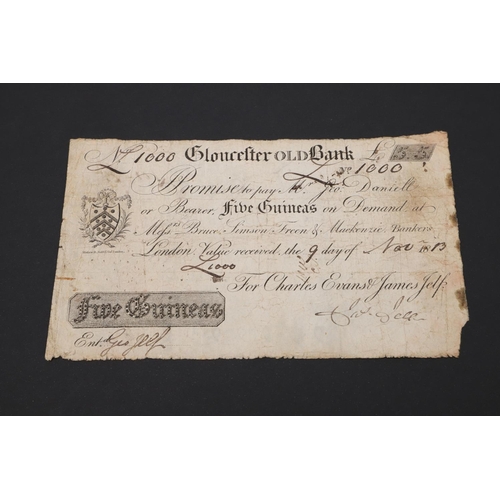 No. 1000 Gloucester OLD Bank £ 5.5
1000
I Promise to pay Mr. Geo. Dansell
or Bearer, Five Guineas on Demand at
Messrs Bruce, Simson, Freer & Mackenzie Bankers
London. Value received, the 9 day of Nov 1813
£1000
For Charles Evans & James Jelf:
Five Guineas
Ent. Geo Jelf
Jas. Jelf